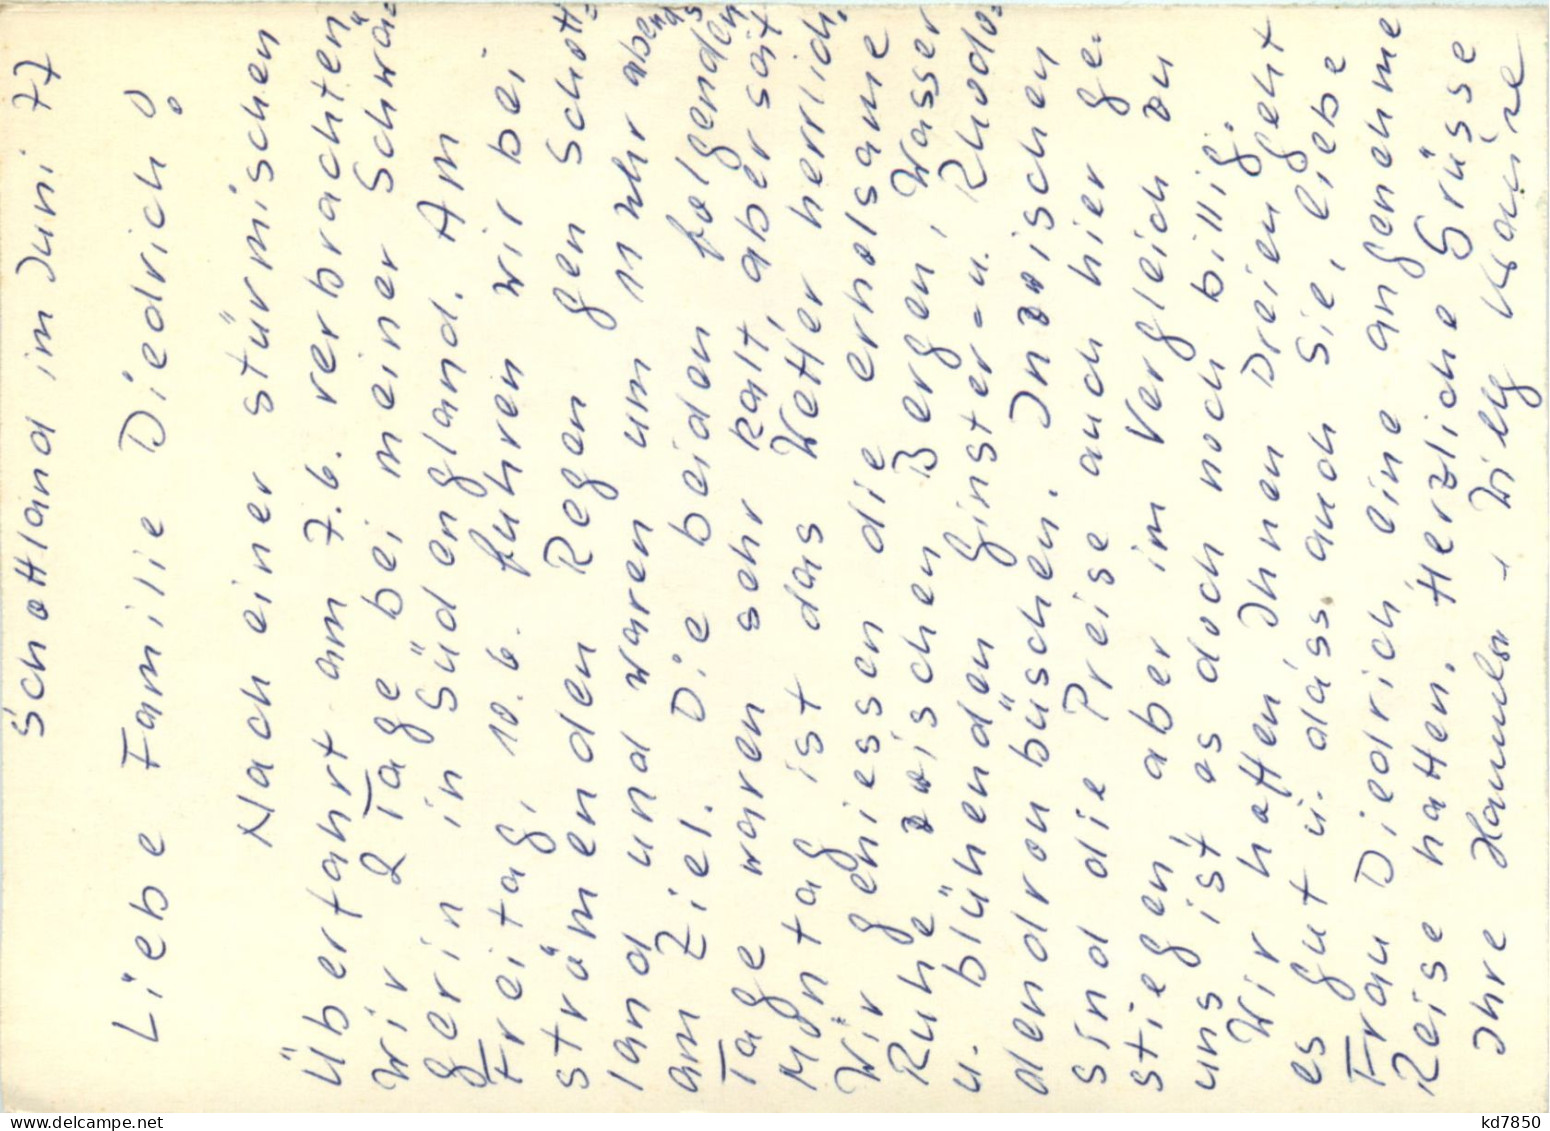 Schottland im Juni 77
Liebe Familie Diedrich!
Nach einer stürmischen
Überfahrt am 7.6. verbrachten
wir 2 Tage bei meiner Schwä=
gerin in Südengland. Am
Freitag, 10.6. fuhren wir bei
strömenden Regen gen Schott=
land und waren um 11 Uhr abends
am Ziel. Die beiden folgenden
Tage waren sehr kalt, aber seit
Montag ist das Wetter herrlich.
Wir geniessen die erholsame
Ruhe zwischen Bergen, Wasser
u. blühenden Ginster- u. Rhodo=
dendronbüschen. Inzwischen
sind die Preise auch hier ge=
stiegen, aber im Vergleich zu
uns ist es doch noch billig.
Wir hoffen Ihnen Dreien geht
es gut u. dass auch Sie, liebe
Frau Diedrich eine angenehme
Reise hatten. Herzliche Grüsse
Ihre + Willy
kd7850
delcampe.net